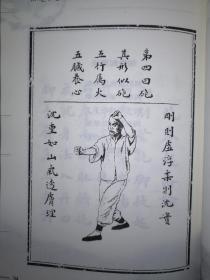 第四曰砲
其形似砲
五行屬火
五臟養心
剛則虛浮柔則沈實
沈重如山氣透膚理